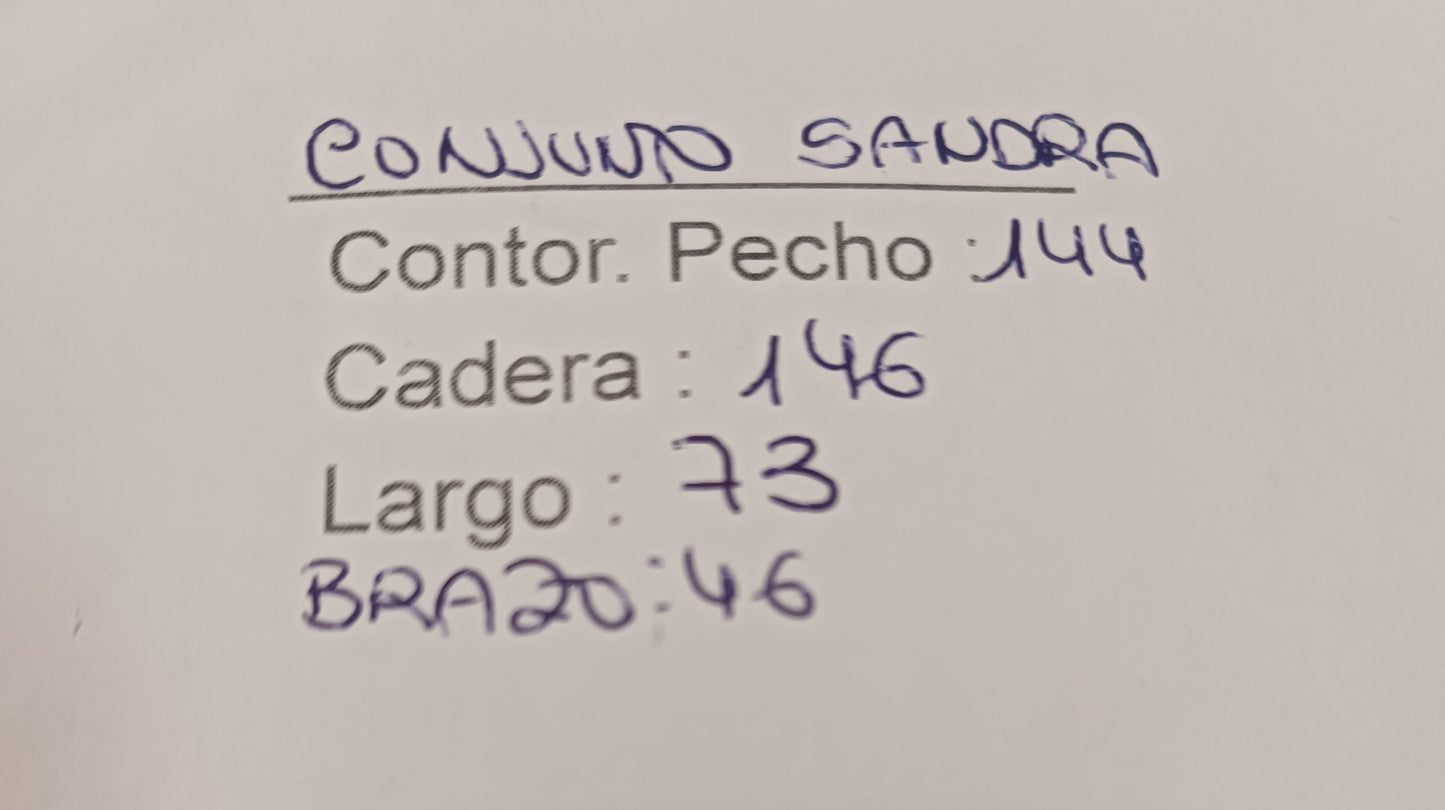 CONJUNTO SANDRA
Contor. Pecho :144
Cadera : 146
Largo : 73
BRAZO:46